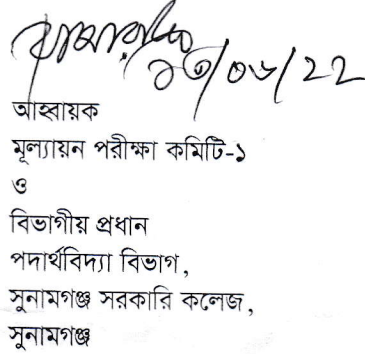 ১৩/০৬/22
আহ্বায়ক
মূল্যায়ন পরীক্ষা কমিটি-১
ও
বিভাগীয় প্রধান
পদার্থবিদ্যা বিভাগ,
সুনামগঞ্জ সরকারি কলেজ,
সুনামগঞ্জ